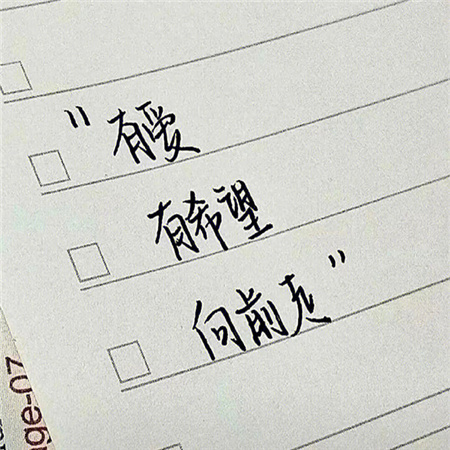 "有爱
有希望
向前走"
ge-07